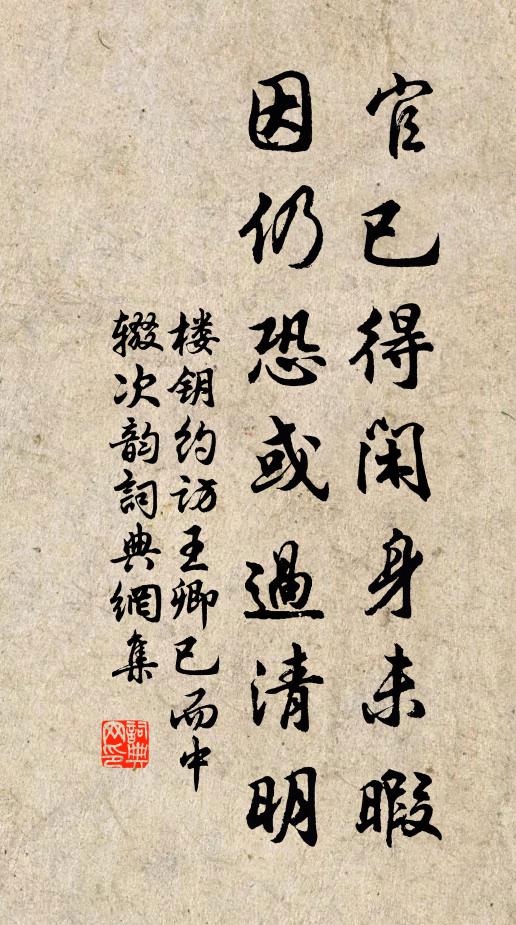 官已得闲身未暇
因仍恐或過清明
楼钥约访王卿已而中
辍次韵詞典網集
詞典